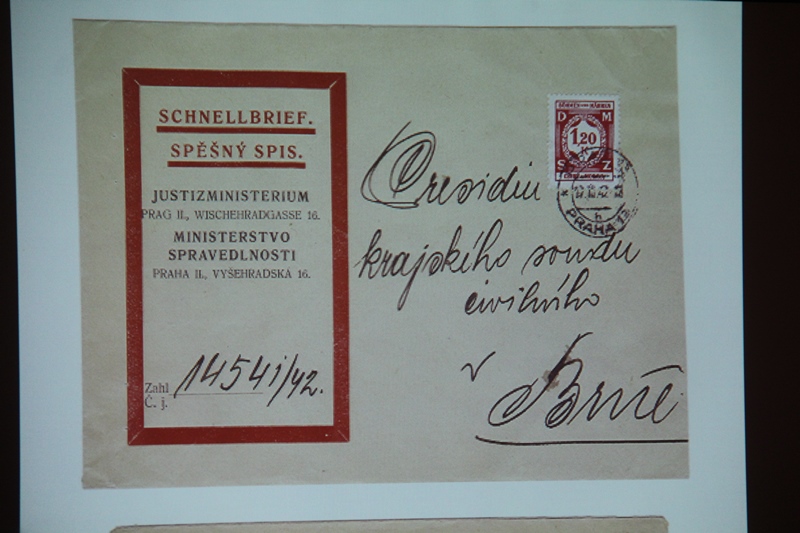 SCHNELLBRIEF.
SPĚŠNÝ SPIS.
JUSTIZMINISTERIUM
PRAG II., WISCHEHRADGASSE 16.
MINISTERSTVO
SPRAVEDLNOSTI
PRAHA II., VYŠEHRADSKÁ 16.
Zahl
Č. j.
14541/42.
BÖHMEN UND MÄHREN
D M
1,20
K
S Z
PRAHA
Presidiu
krajského soudu
civilního
v
Brně